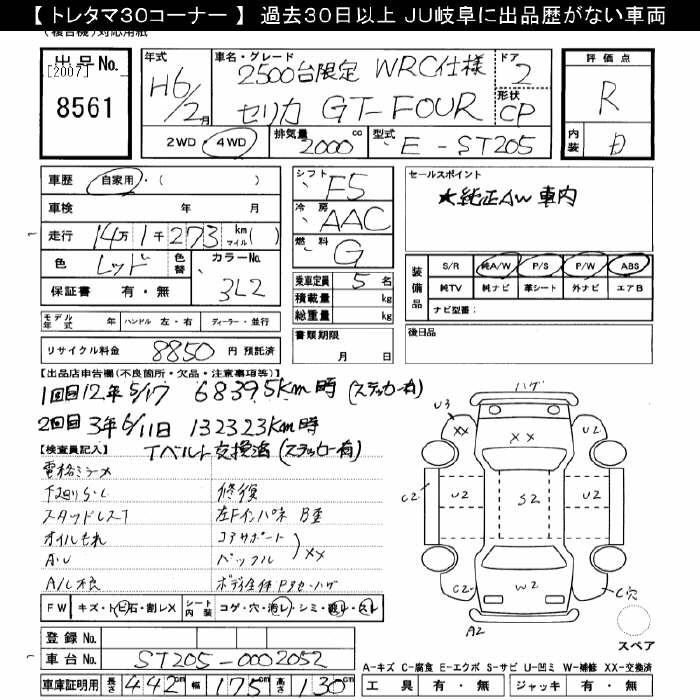 【 トレタマ30コーナー 】 過去30日以上 JU岐阜に出品歴がない車両
(複合機)対応用紙
出品No. [2007] 8561
年式 H6/2月
車名・グレード 2500台限定 WRC仕様
セリカ GT-FOUR
ドア 2
形状 CP
評価点 R
内装 D
2WD・4WD 排気量 2000 cc 型式 E-ST205
車歴 自家用・( )
車検 年 月
走行 14万1千273 km マイル( )
色 レッド 色替 カラーNo. 3L2
保証書 有・無
シフト F5
冷房 AAC
燃料 G
乗車定員 5 名
積載量 kg
総重量 kg
セールスポイント
★純正AW 車内
装備品 S/R 純A/W P/S P/W ABS
純TV 純ナビ 革シート 外ナビ エアB
ナビ型番:
モデル年式 年 ハンドル 左・右 ディーラー・並行
書類期限 月 日
後日品
リサイクル料金 8850 円 預託済
【出品店申告欄(不良箇所・欠品・注意事項等)】
1回目12年5/17 68395km時 (ステッカー有)
2回目 3年6/11日 132323km時
Tベルト交換済(ステッカー有)
【検査員記入】
電格ミラー
下廻りS・C 修復
スタッドレスT 左Fインパネ B歪
オイルもれ コアサポート
バッフル XX
A/C不良 ボディ全体 Pヌケ・ハゲ
FW キズ・トビ石・割レX シート内装 コゲ・穴・汚レ・シミ・破レ・スレ
登録No.
車台No. ST205-0002052
車庫証明用 長さ 442cm 幅 175cm 高さ 130cm
ハゲ
U3 XX XX U2 U2
C2 U2 S2 U2 U2
C2 W2 C穴
A2
スペア
A-キズ C-腐食 E-エクボ S-サビ U-凹ミ W-補修 XX-交換済
工具 有・無 ジャッキ 有・無